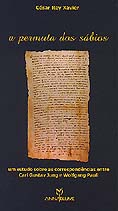 César Rey Xavier
a permuta dos sábios
um estudo sobre as correspondências entre
Carl Gustav Jung e Wolfgang Pauli
ANNABLUME